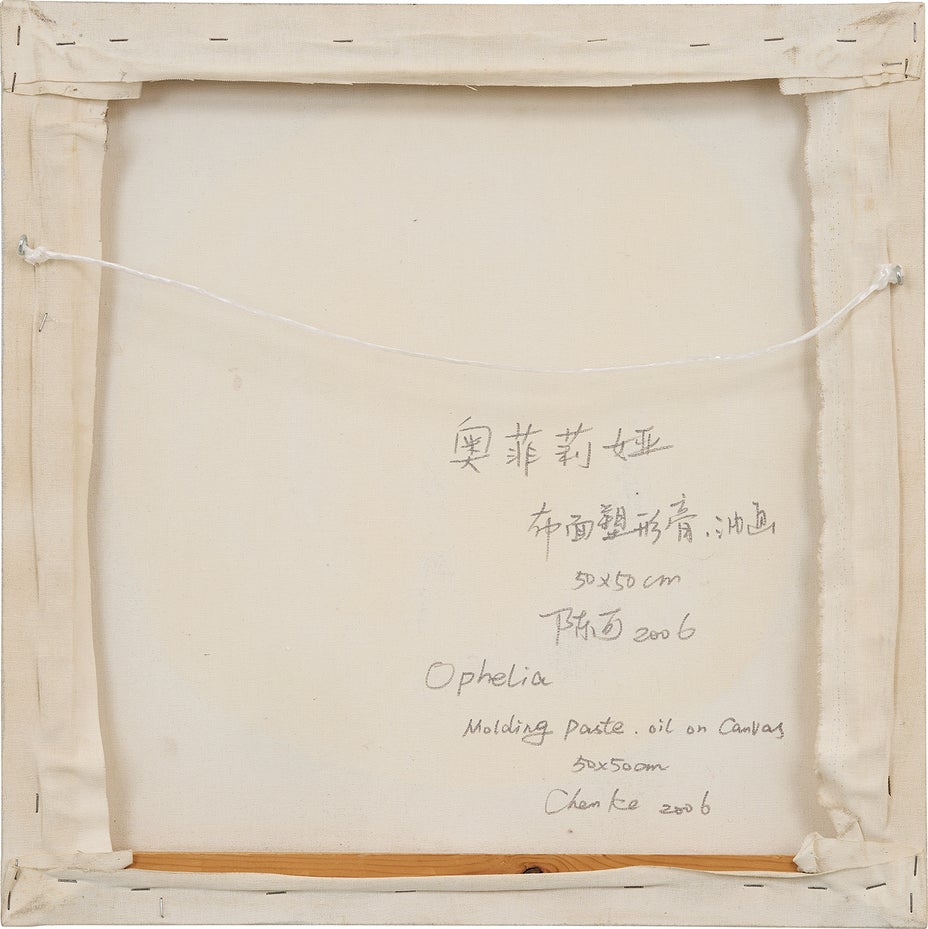 奥菲莉娅
布面塑形膏.油画
50x50cm
陈可 2006
Ophelia
Molding paste. oil on Canvas
50x50cm
Chen Ke 2006